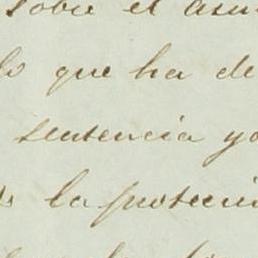 sobre el asun
lo que ha de
sentencia yo
la protecci